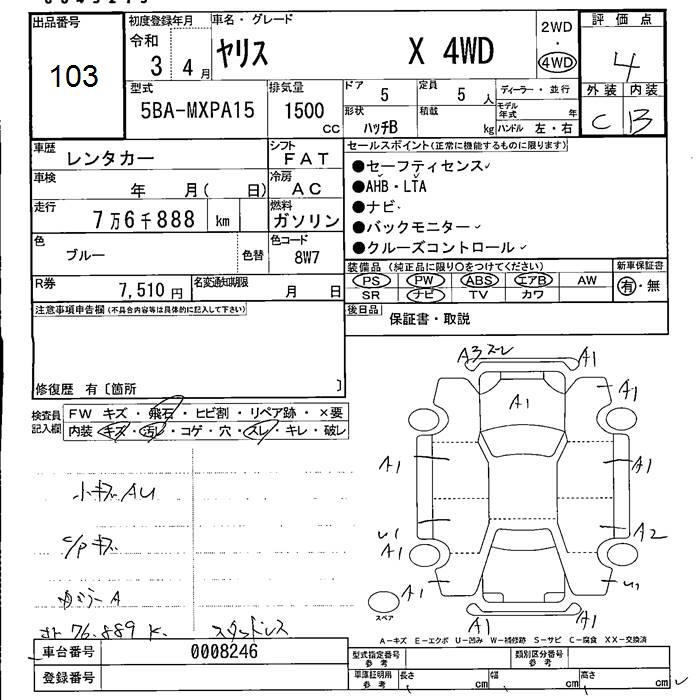 出品番号
103
初度登録年月
令和
3 年 4 月
車名・グレード
ヤリス X 4WD
2WD
・
4WD
評価点
4
型式
5BA-MXPA15
排気量
1500 CC
ドア
5
定員
5 人
形状
ハッチB
積載
kg
ディーラー・並行
モデル年式 年
ハンドル 左・右
外装 内装
C B
車歴 レンタカー
シフト FAT
車検 年 月( 日)
冷房 AC
走行 7万6千888 km
燃料 ガソリン
色 ブルー 色替
色コード 8W7
R券 7,510 円
名変通知期限 月 日
セールスポイント(正常に機能するものに限ります)
●セーフティセンス
●AHB・LTA
●ナビ
●バックモニター
●クルーズコントロール
装備品 (純正品に限り○をつけてください)
PS PW ABS エアB AW
SR ナビ TV カワ
新車保証書
有・無
後日品 保証書・取説
注意事項申告欄(不具合内容等は具体的に記入して下さい)
修復歴 有〔箇所 〕
検査員記入欄
FW キズ・飛石・ヒビ割・リペア跡・×要
内装 キズ・汚レ・コゲ・穴・スレ・キレ・破レ
小キズ AU
C/P キズ
A
76.889 K.
スタッドレス
A3 スレ
A1
A1
A1
A1
A1
U1
A1
A2
A1
U1
A1
A1
スペア
A-キズ E-エクボ U-凹み W-補修跡 S-サビ C-腐食 XX-交換済
車台番号 0008246
登録番号
型式指定番号 参考
類別区分番号 参考
車庫証明用 参考
長さ cm 幅 cm 高さ cm